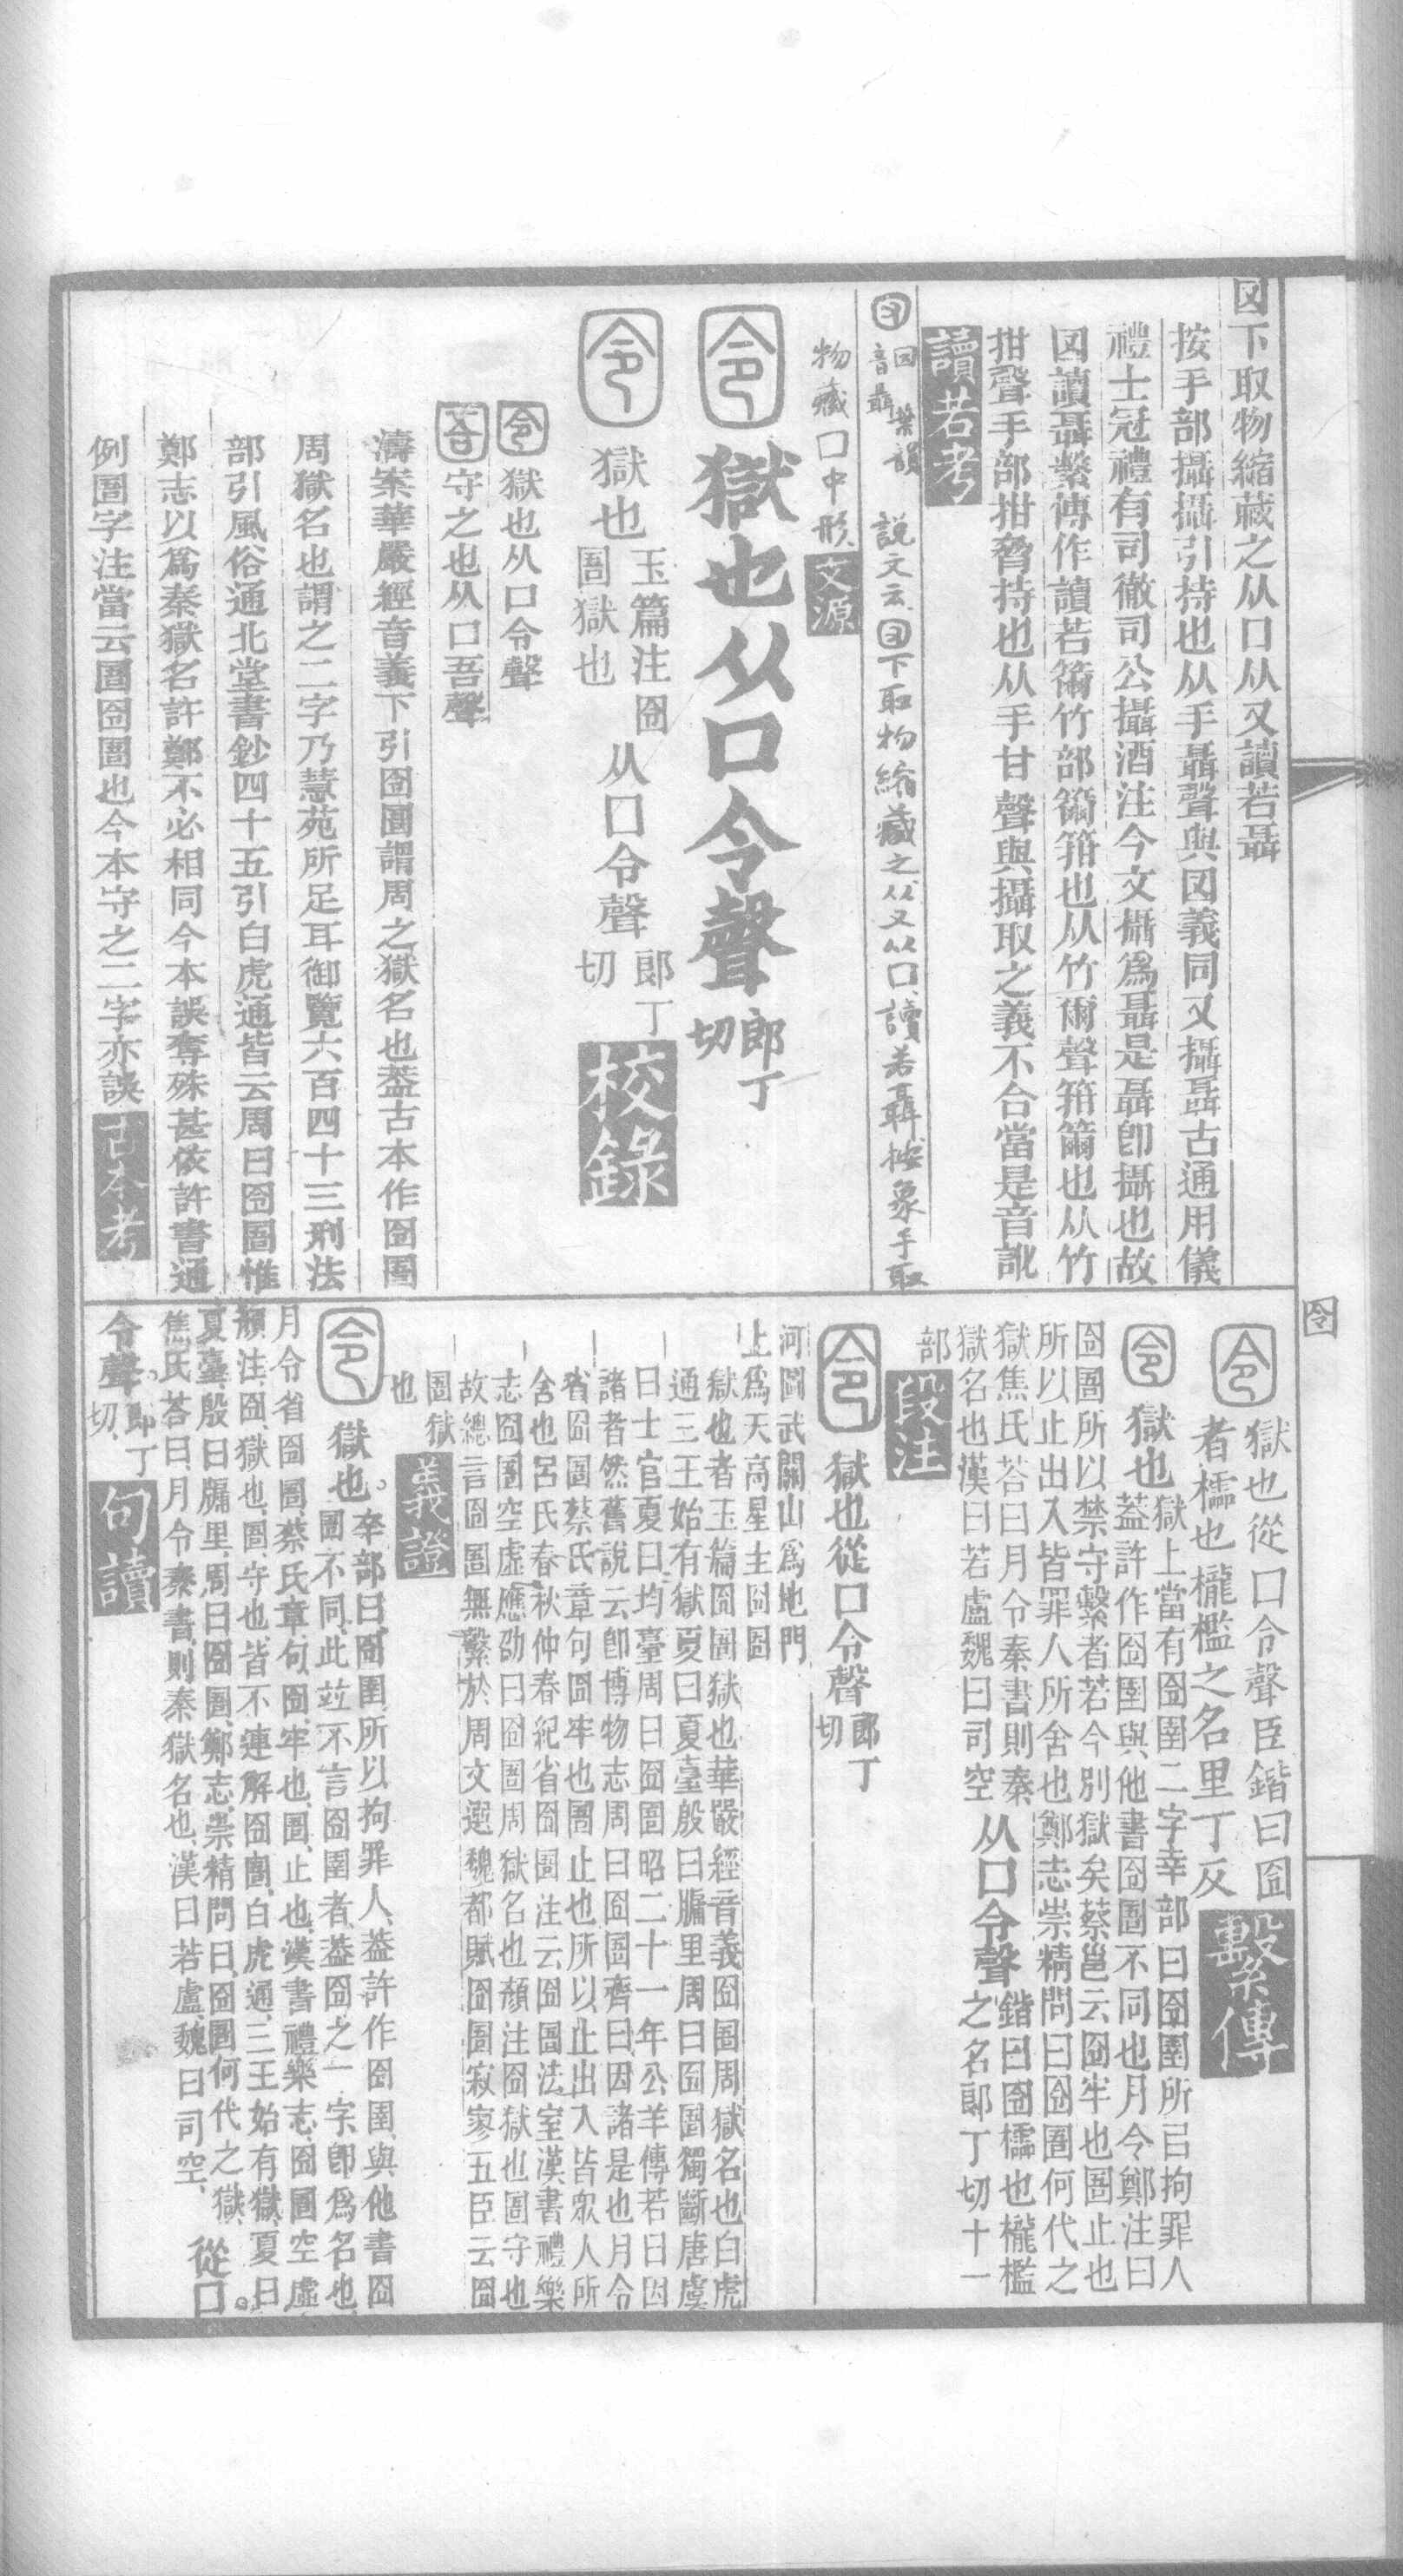 囡下取物縮藏之从囗从又讀若聶
按手部攝攝引持也从手聶聲與囡義同又攝聶古通用儀
禮士冠禮有司徹司公攝酒注今文攝爲聶是聶卽攝也故
囡讀聶繫傳作讀若籋竹部籋箝也从竹爾聲箝籋也从竹
拑聲手部拑脅持也从手甘聲與攝取之義不合當是音訛
讀若考
囡音聶葉韻
說文云囡下取物縮藏之从又从囗讀若聶按象手取
物藏囗中形
文源
囹 獄也从囗令聲郎丁切
囹 獄也玉篇注囹圄獄也从囗令聲郎丁切
校錄
囹 獄也从囗令聲
圄 守之也从囗吾聲
濤案華嚴經音義下引囹圄謂周之獄名也葢古本作囹圄
周獄名也謂之二字乃慧苑所足耳御覽六百四十三刑法
部引風俗通北堂書鈔四十五引白虎通皆云周曰囹圄惟
鄭志以爲秦獄名許鄭不必相同今本誤奪殊甚依許書通
例圄字注當云圄囹圄也今本守之二字亦誤
古本考
囹
囹 獄也從囗令聲臣鍇曰囹
者櫺也櫳檻之名里丁反
繫傳
囹 獄也獄上當有囹圉二字㚔部曰囹圉所㠯拘罪人
葢許作囹圉與他書囹圄不同也月令鄭注曰
囹圄所以禁守繫者若今別獄矣蔡邕云囹牢也圄止也
所以止出入皆罪人所舍也鄭志崇精問曰囹圄何代之
獄焦氏荅曰月令秦書則秦
獄名也漢曰若盧魏曰司空
从囗令聲鍇曰囹櫺也櫳檻
之名郎丁切十一
部
段注
囹 獄也從囗令聲郎丁切
河圖武關山爲地門
上爲天高星主囹圄
獄也者玉篇囹圄獄也華嚴經音義囹圄周獄名也白虎
通三王始有獄夏曰夏臺殷曰牖里周曰囹圄獨斷唐虞
曰士官夏曰均臺周曰囹圄昭二十一年公羊傳若曰因
諸者然舊說云卽博物志周曰囹圄齊曰因諸是也月令
省囹圄蔡氏章句囹牢也圄止也所以止出入皆眾人所
舍也呂氏春秋仲春紀省囹圄注云囹圄法室漢書禮樂
志囹圄空虛應劭曰囹圄周獄名也顏注囹獄也圄守也
故總言囹圄無繫於周文選魏都賦囹圄寂寥五臣云囹
圄獄
也
義證
囹 獄也。㚔部曰囹圉所以拘罪人葢許作囹圉與他書囹
圄不同此竝不言囹圉者葢囹之一字卽爲名也
月令省囹圄蔡氏章句囹牢也圄止也漢書禮樂志囹圄空虛
顏注囹獄也圄守也皆不連解囹圄白虎通三王始有獄夏曰
夏臺殷曰牖里周曰囹圄鄭志崇精問曰囹圄何代之獄
焦氏荅曰月令秦書則秦獄名也漢曰若盧魏曰司空
從囗。
令聲。郎丁切
句讀